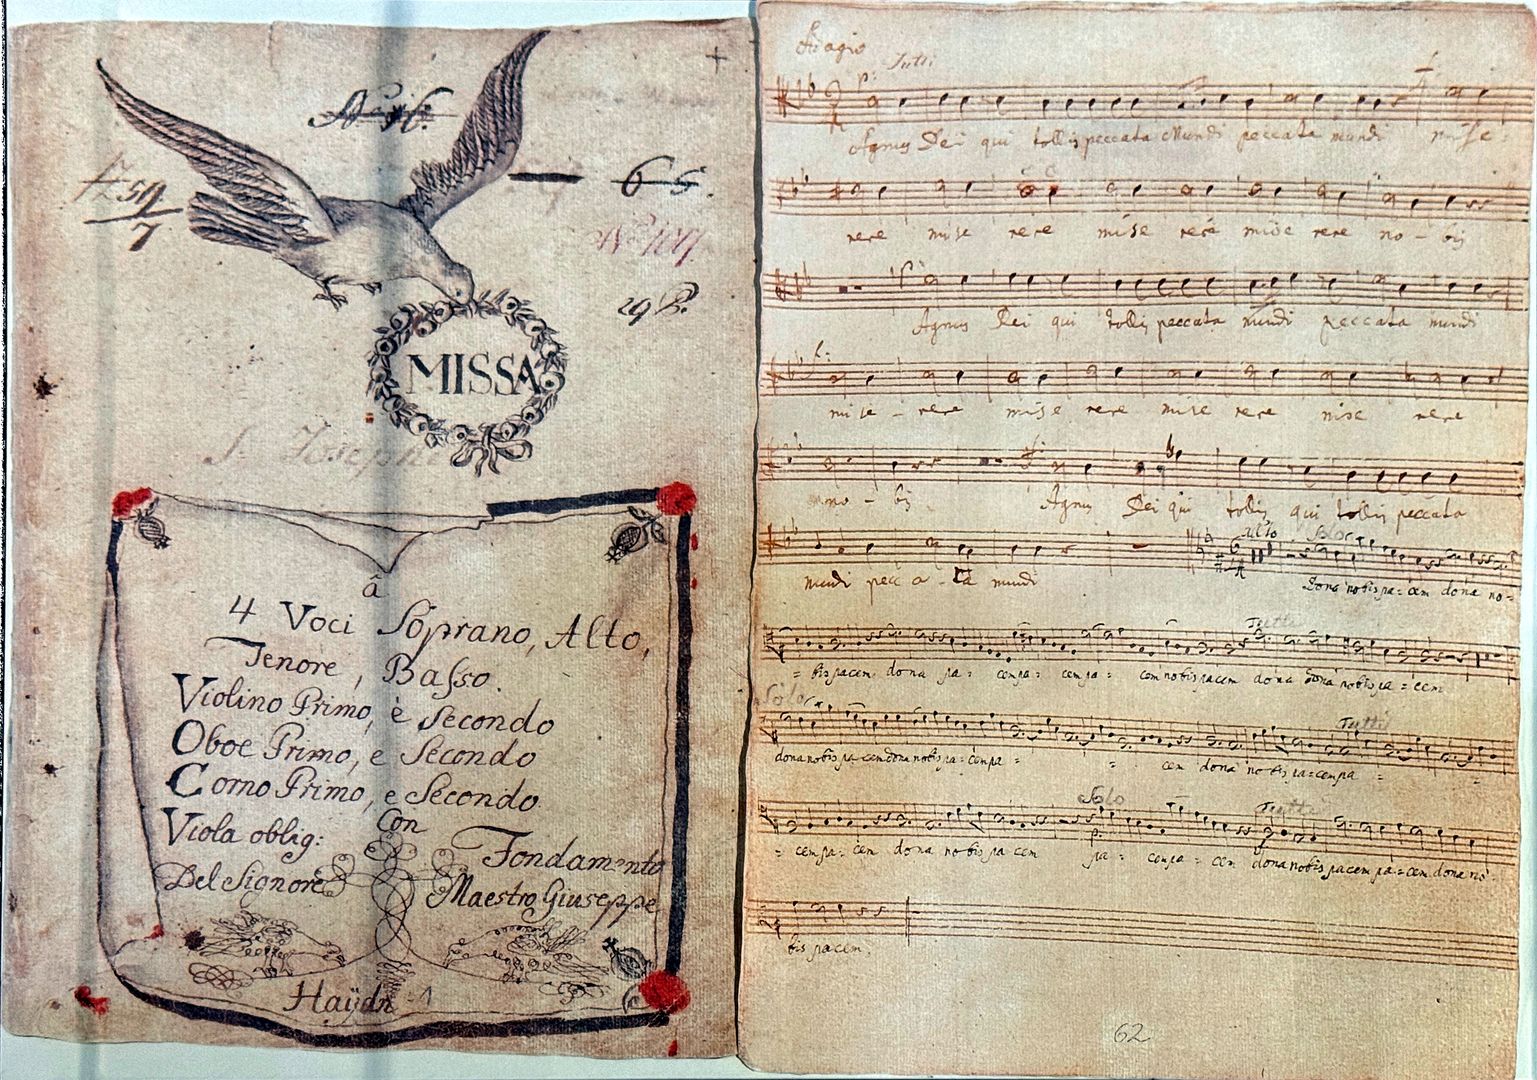 6 5.
7
29
MISSA
S. Josephi
â
4 Voci Soprano, Alto,
Tenore, Basso.
Violino Primo, è Secondo
Oboe Primo, e Secondo
Corno Primo, e Secondo
Viola oblig: Con Fondamento
Del Signore Maestro Giuseppe
Haÿdn
Adagio
p: Tutti
Agnus Dei qui tollis peccata Mundi peccata mundi mise-
rere mise rere mise rere mise rere no - bis
Agnus Dei qui tollis peccata mundi peccata mundi
mise - rere mise rere mise rere mise rere
no - bis Agnus Dei qui tollis qui tollis peccata
Alto Solo
mundi pecc a - ta mundi Dona nobis pa = cem dona no =
Tutti
= bis pacem dona pa = cem pa = cem pa = cem nobis pacem dona dona nobis pa = cem
Solo Tutti
dona nobis pa cem dona nobis pa = cem pa = = cem dona no bis pa = cem pa = =
Solo Tutti
= cem pa = cem dona no bis pa cem pa = cem pa = cem dona nobis pacem pa = cem dona no =
bis pacem.
62